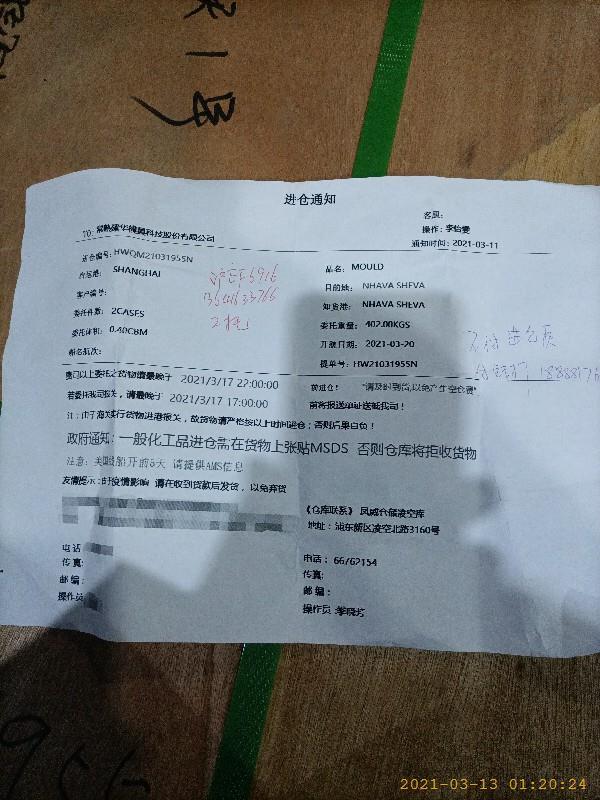 进仓通知
TO: 常熟建华模具科技股份有限公司
客服:
操作: 李怡雯
通知时间: 2021-03-11
进仓编号: HWQM21031955N
启运港: SHANGHAI
客户编号:
委托件数: 2CASES
委托体积: 0.40CBM
船名航次:
品名: MOULD
目的地: NHAVA SHEVA
卸货港: NHAVA SHEVA
委托重量: 402.00KGS
开航日期: 2021-03-20
提单号: HW21031955N
贵司以上委托之货物请最晚于 2021/3/17 22:00:00 前进仓! "请及时到货,以免产生空仓费"
若委托我司报关, 请最晚于 2021/3/17 17:00:00 前将报送单证送抵我司!
注: 由于海关实行货物进港报关, 故货物请严格按以上时间进仓; 否则后果自负!
政府通知: 一般化工品进仓需在货物上张贴MSDS 否则仓库将拒收货物
注意: 美线船开前5天 请提供AMS信息
友情提示: 因疫情影响 请在收到货款后发货, 以免弃货
《仓库联系》 凤威仓储凌空库
地址: 浦东新区凌空北路3160号
电话
传真:
邮编:
操作员
电话: 66762154
传真:
邮编:
操作员:
2021-03-13 01:20:24